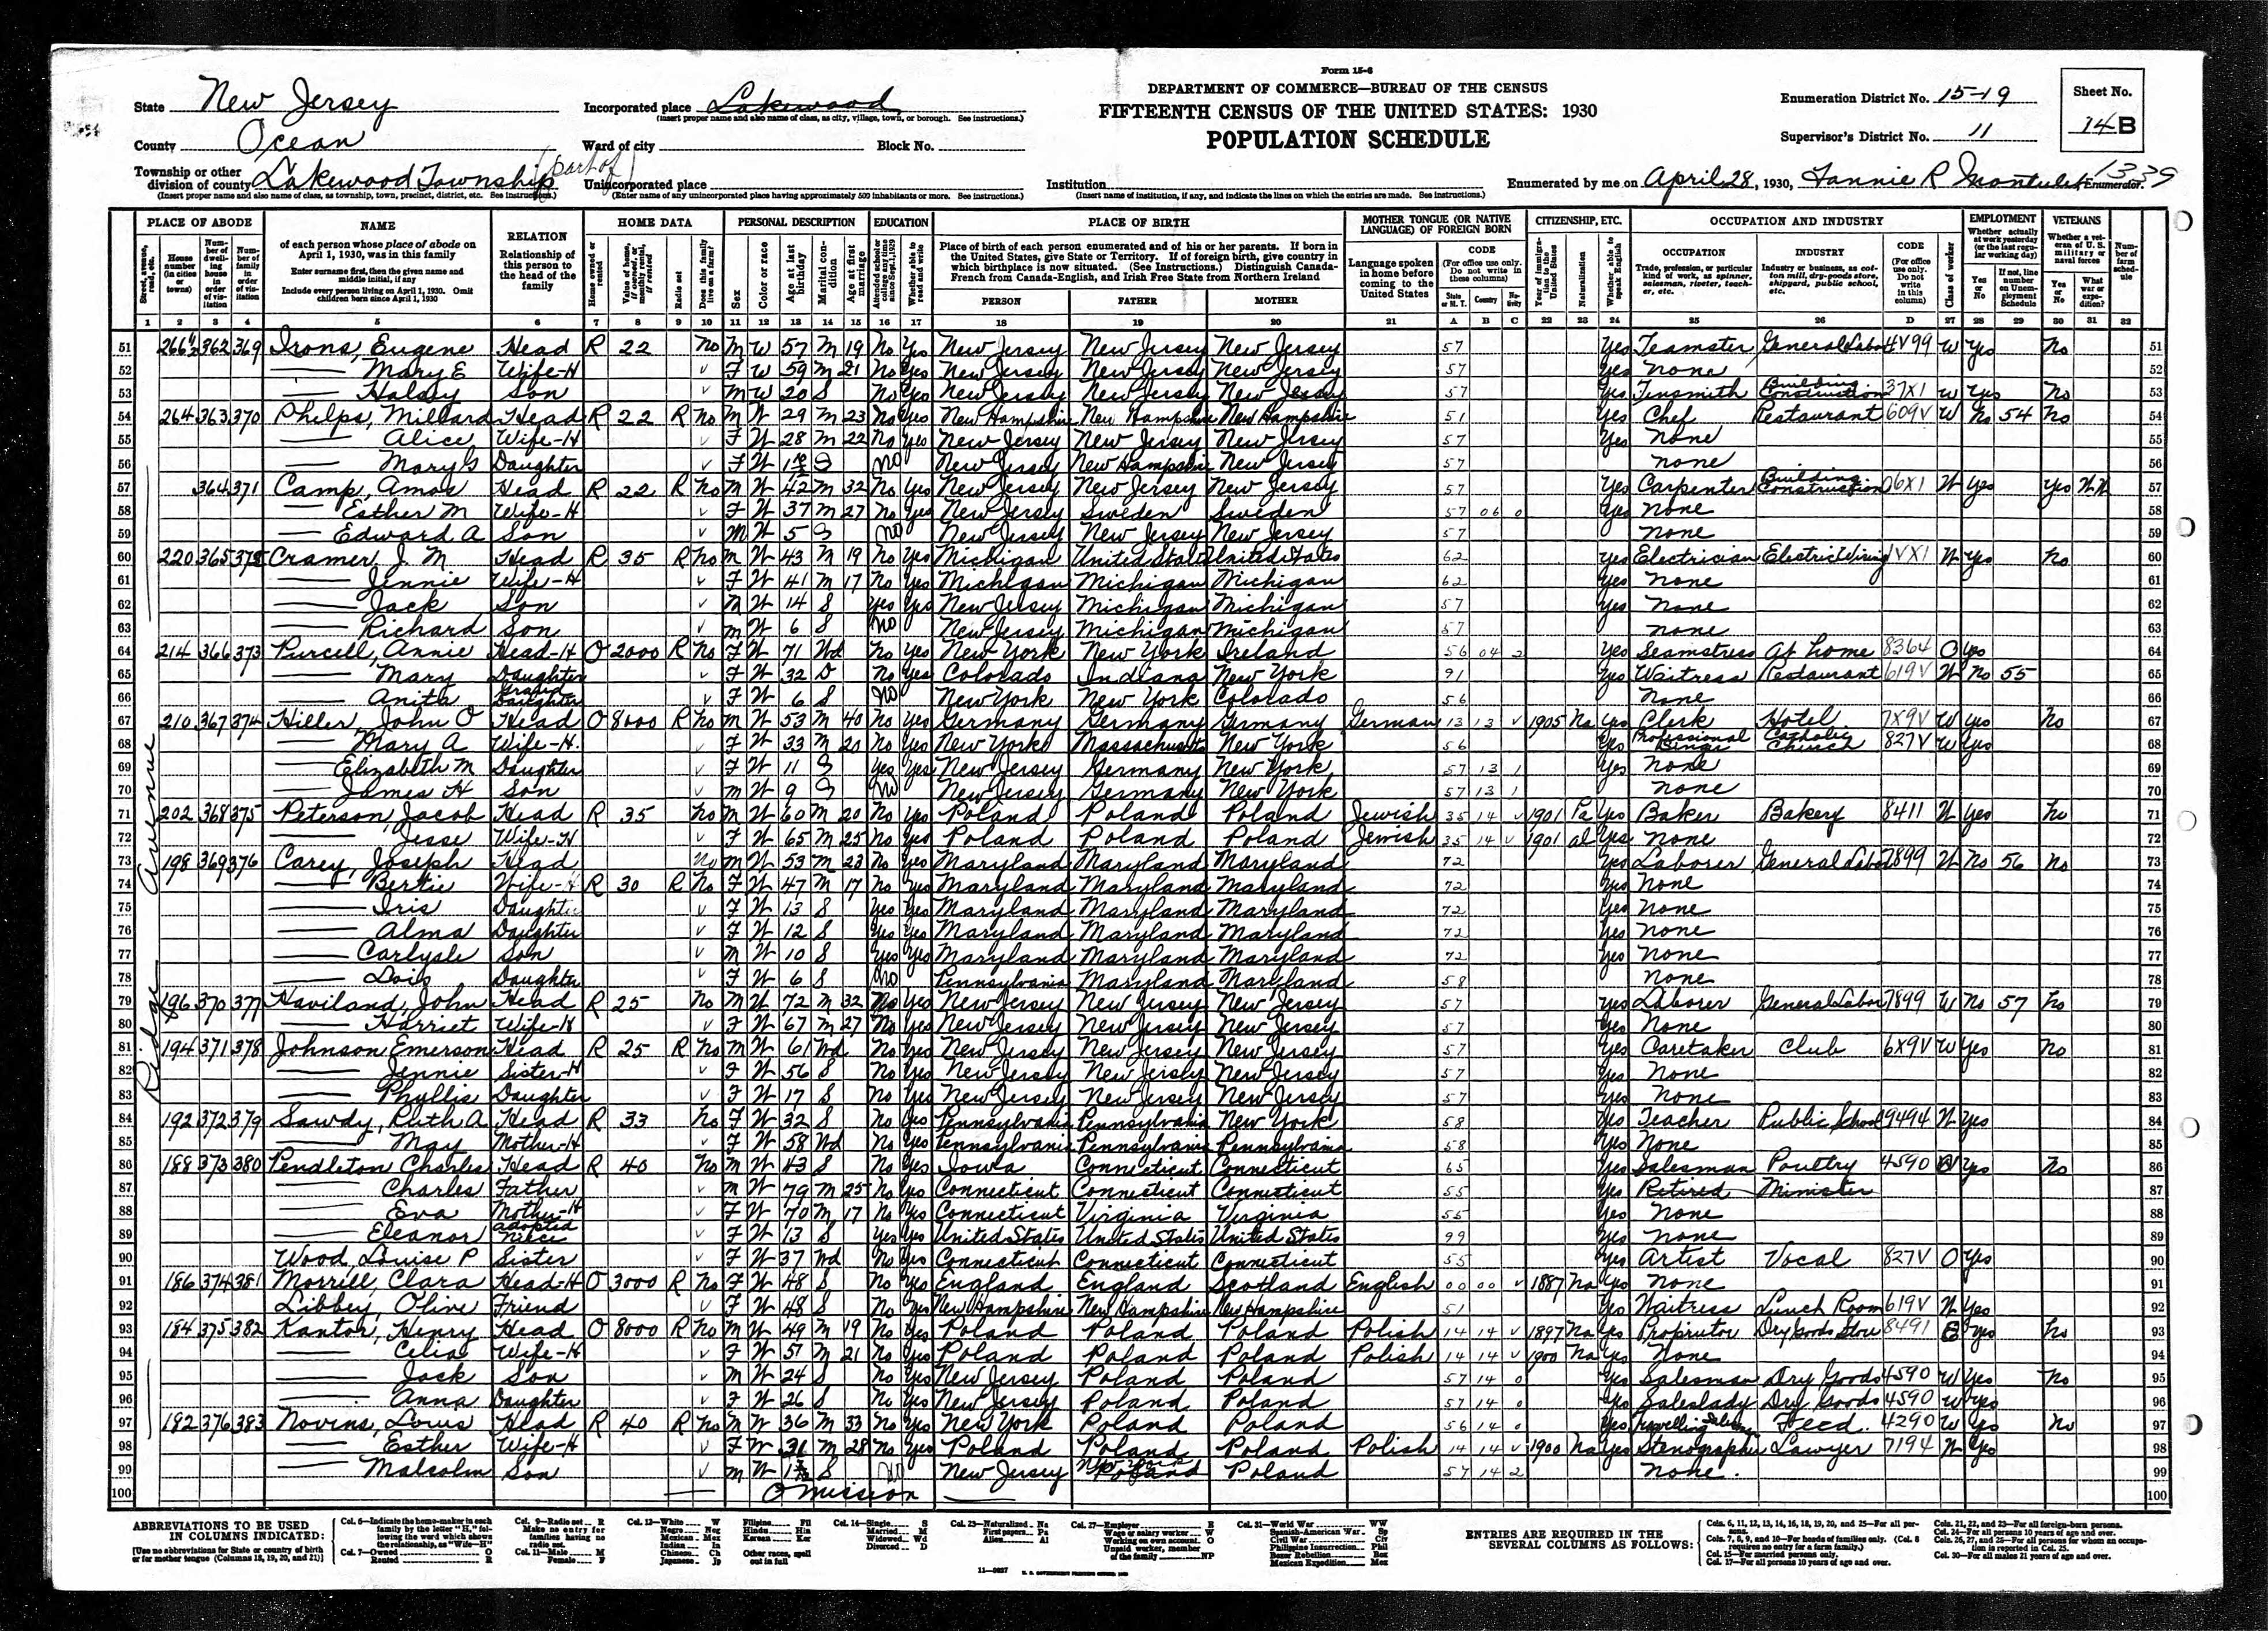 Form 15-6
DEPARTMENT OF COMMERCE—BUREAU OF THE CENSUS
FIFTEENTH CENSUS OF THE UNITED STATES: 1930
POPULATION SCHEDULE
State New Jersey
County Ocean
Township or other division of county Lakewood Township (part of)
(Insert proper name and also name of class, as township, town, precinct, district, etc. See instructions.)
Incorporated place Lakewood
(Insert proper name and also name of class, as city, village, town, or borough. See instructions.)
Ward of city Block No.
Unincorporated place
(Enter name of any unincorporated place having approximately 500 inhabitants or more. See instructions.)
Institution
(Insert name of institution, if any, and indicate the lines on which the entries are made. See instructions.)
Enumeration District No. 15-19
Supervisor's District No. 11
Sheet No. 14 B
Enumerated by me on April 28, 1930, Fannie R Enumerator.
1339
PLACE OF ABODE NAME RELATION HOME DATA PERSONAL DESCRIPTION EDUCATION PLACE OF BIRTH MOTHER TONGUE (OR NATIVE LANGUAGE) OF FOREIGN BORN CITIZENSHIP, ETC. OCCUPATION AND INDUSTRY EMPLOYMENT VETERANS
Ridge Avenue
51 266½ 362 369 Irons, Eugene Head R 22 No M W 57 M 19 No Yes New Jersey New Jersey New Jersey 57 Yes Teamster General Labor 4V99 W Yes No 51
52 — Mary E Wife-H √ F W 59 M 21 No Yes New Jersey New Jersey New Jersey 57 Yes none 52
53 — Halsey Son √ M W 20 S No Yes New Jersey New Jersey New Jersey 57 Yes Tinsmith Building Construction 37X1 W Yes No 53
54 264 363 370 Phelps, Millard Head R 22 R No M W 29 M 23 No Yes New Hampshire New Hampshire New Hampshire 51 Yes Chef Restaurant 609V W No 54 No 54
55 — Alice Wife-H √ F W 28 M 22 No Yes New Jersey New Jersey New Jersey 57 Yes None 55
56 — Mary G Daughter √ F W S No New Jersey New Hampshire New Jersey 57 none 56
57 364 371 Camp, Amos Head R 22 R No M W 42 M 32 No Yes New Jersey New Jersey New Jersey 57 Yes Carpenter Building Construction 06X1 W Yes Yes WW 57
58 — Esther M Wife-H √ F W 37 M 27 No Yes New Jersey Sweden Sweden 57 06 0 Yes None 58
59 — Edward A Son √ M W 5 S No New Jersey New Jersey New Jersey 57 None 59
60 220 365 372 Cramer, J. M Head R 35 R No M W 43 M 19 No Yes Michigan United States United States 62 Yes Electrician Electric Wiring 1VX1 W Yes No 60
61 — Jennie Wife-H √ F W 41 M 17 No Yes Michigan Michigan Michigan 62 Yes None 61
62 — Jack Son √ M W 14 S Yes Yes New Jersey Michigan Michigan 57 Yes None 62
63 — Richard Son √ M W 6 S No New Jersey Michigan Michigan 57 none 63
64 214 366 373 Purcell, Annie Head-H O 2000 R No F W 71 Wd No Yes New York New York Ireland 56 04 2 Yes Seamstress At home 8364 O Yes 64
65 — Mary Daughter √ F W 32 D No Yes Colorado Indiana New York 91 Yes Waitress Restaurant 619V W No 55 65
66 — Anita Grand Daughter √ F W 6 S No New York New York Colorado 56 None 66
67 210 367 374 Hiller, John O Head O 8000 R No M W 53 M 40 No Yes Germany Germany Germany German 13 13 V 1905 Na Yes Clerk Hotel 7X9V W Yes No 67
68 — Mary A Wife-H. √ F W 33 M 20 No Yes New York Massachusetts New York 56 Yes Professional Singer Catholic Church 827V W Yes 68
69 — Elizabeth M Daughter √ F W 11 S Yes Yes New Jersey Germany New York 57 13 1 Yes None 69
70 — James H Son √ M W 9 S No New Jersey Germany New York 57 13 1 none 70
71 202 368 375 Peterson, Jacob Head R 35 No M W 60 M 20 No Yes Poland Poland Poland Jewish 35 14 V 1901 Pa Yes Baker Bakery 8411 W Yes No 71
72 — Jesse Wife-H √ F W 65 M 25 No Yes Poland Poland Poland Jewish 35 14 V 1901 al Yes None 72
73 198 369 376 Carey, Joseph Head No M W 53 M 23 No Yes Maryland Maryland Maryland 72 Yes Laborer General Labor 7899 W No 56 No 73
74 — Bertie Wife-H R 30 R No F W 47 M 17 No Yes Maryland Maryland Maryland 72 Yes None 74
75 — Iris Daughter √ F W 13 S Yes Yes Maryland Maryland Maryland 72 Yes None 75
76 — Alma Daughter √ F W 12 S Yes Yes Maryland Maryland Maryland 72 Yes None 76
77 — Carlysle Son √ M W 10 S Yes Yes Maryland Maryland Maryland 72 Yes None 77
78 — Lois Daughter √ F W 6 S No Pennsylvania Maryland Maryland 58 None 78
79 196 370 377 Haviland, John Head R 25 No M W 72 M 32 No Yes New Jersey New Jersey New Jersey 57 Yes Laborer General Labor 7899 W No 57 No 79
80 — Harriet Wife-H √ F W 67 M 27 No Yes New Jersey New Jersey New Jersey 57 Yes None 80
81 194 371 378 Johnson Emerson Head R 25 R No M W 61 Wd No Yes New Jersey New Jersey New Jersey 57 Yes Caretaker Club 6X9V W Yes No 81
82 — Jennie Sister-H √ F W 56 S No Yes New Jersey New Jersey New Jersey 57 Yes None 82
83 — Phyllis Daughter √ F W 17 S No Yes New Jersey New Jersey New Jersey 57 Yes None 83
84 192 372 379 Sawdy, Ruth A Head R 33 No F W 32 S No Yes Pennsylvania Pennsylvania New York 58 Yes Teacher Public School 9494 W Yes 84
85 — May Mother-H √ F W 58 Wd No Yes Pennsylvania Pennsylvania Pennsylvania 58 Yes None 85
86 188 373 380 Pendleton Charles Head R 40 No M W 43 S No Yes Iowa Connecticut Connecticut 65 Yes Salesman Poultry 4590 W Yes No 86
87 — Charles Father √ M W 79 M 25 No Yes Connecticut Connecticut Connecticut 55 Yes Retired Minister 87
88 — Eva Mother-H √ F W 70 M 17 No Yes Connecticut Virginia Virginia 55 Yes None 88
89 — Eleanor adopted niece √ F W 13 S Yes Yes United States United States United States 99 Yes None 89
90 Wood, Louise P Sister √ F W 37 Wd No Yes Connecticut Connecticut Connecticut 55 Yes Artist Vocal 827V O Yes 90
91 186 374 381 Morrill, Clara Head-H O 3000 R No F W 48 S No Yes England England Scotland English 00 00 V 1887 Na Yes None 91
92 Libbey, Olive Friend √ F W 48 S No Yes New Hampshire New Hampshire New Hampshire 51 Yes Waitress Lunch Room 619V W Yes 92
93 184 375 382 Kantor, Henry Head O 8000 R No M W 49 M 19 No Yes Poland Poland Poland Polish 14 14 V 1897 Na Yes Proprietor Dry Goods Store 8491 E Yes No 93
94 — Celia Wife-H √ F W 51 M 21 No Yes Poland Poland Poland Polish 14 14 V 1900 Na Yes None 94
95 — Jack Son √ M W 24 S No Yes New Jersey Poland Poland 57 14 0 Yes Salesman Dry Goods 4590 W Yes No 95
96 — Anna Daughter √ F W 26 S No Yes New Jersey Poland Poland 57 14 0 Yes Saleslady Dry Goods 4590 W Yes 96
97 182 376 383 Novins, Louis Head R 40 R No M W 36 M 33 No Yes New York Poland Poland 56 14 0 Yes Travelling Salesman Feed 4290 W Yes No 97
98 — Esther Wife-H √ F W 31 M 28 No Yes Poland Poland Poland Polish 14 14 V 1900 Na Yes Stenographer Lawyer 7194 W Yes 98
99 — Malcolm Son √ M W S No New Jersey New York Poland 57 14 2 none. 99
100 — Omission — 100
ABBREVIATIONS TO BE USED IN COLUMNS INDICATED:
[Use no abbreviations for State or country of birth or for mother tongue (Columns 18, 19, 20, and 21)]
ENTRIES ARE REQUIRED IN THE SEVERAL COLUMNS AS FOLLOWS: